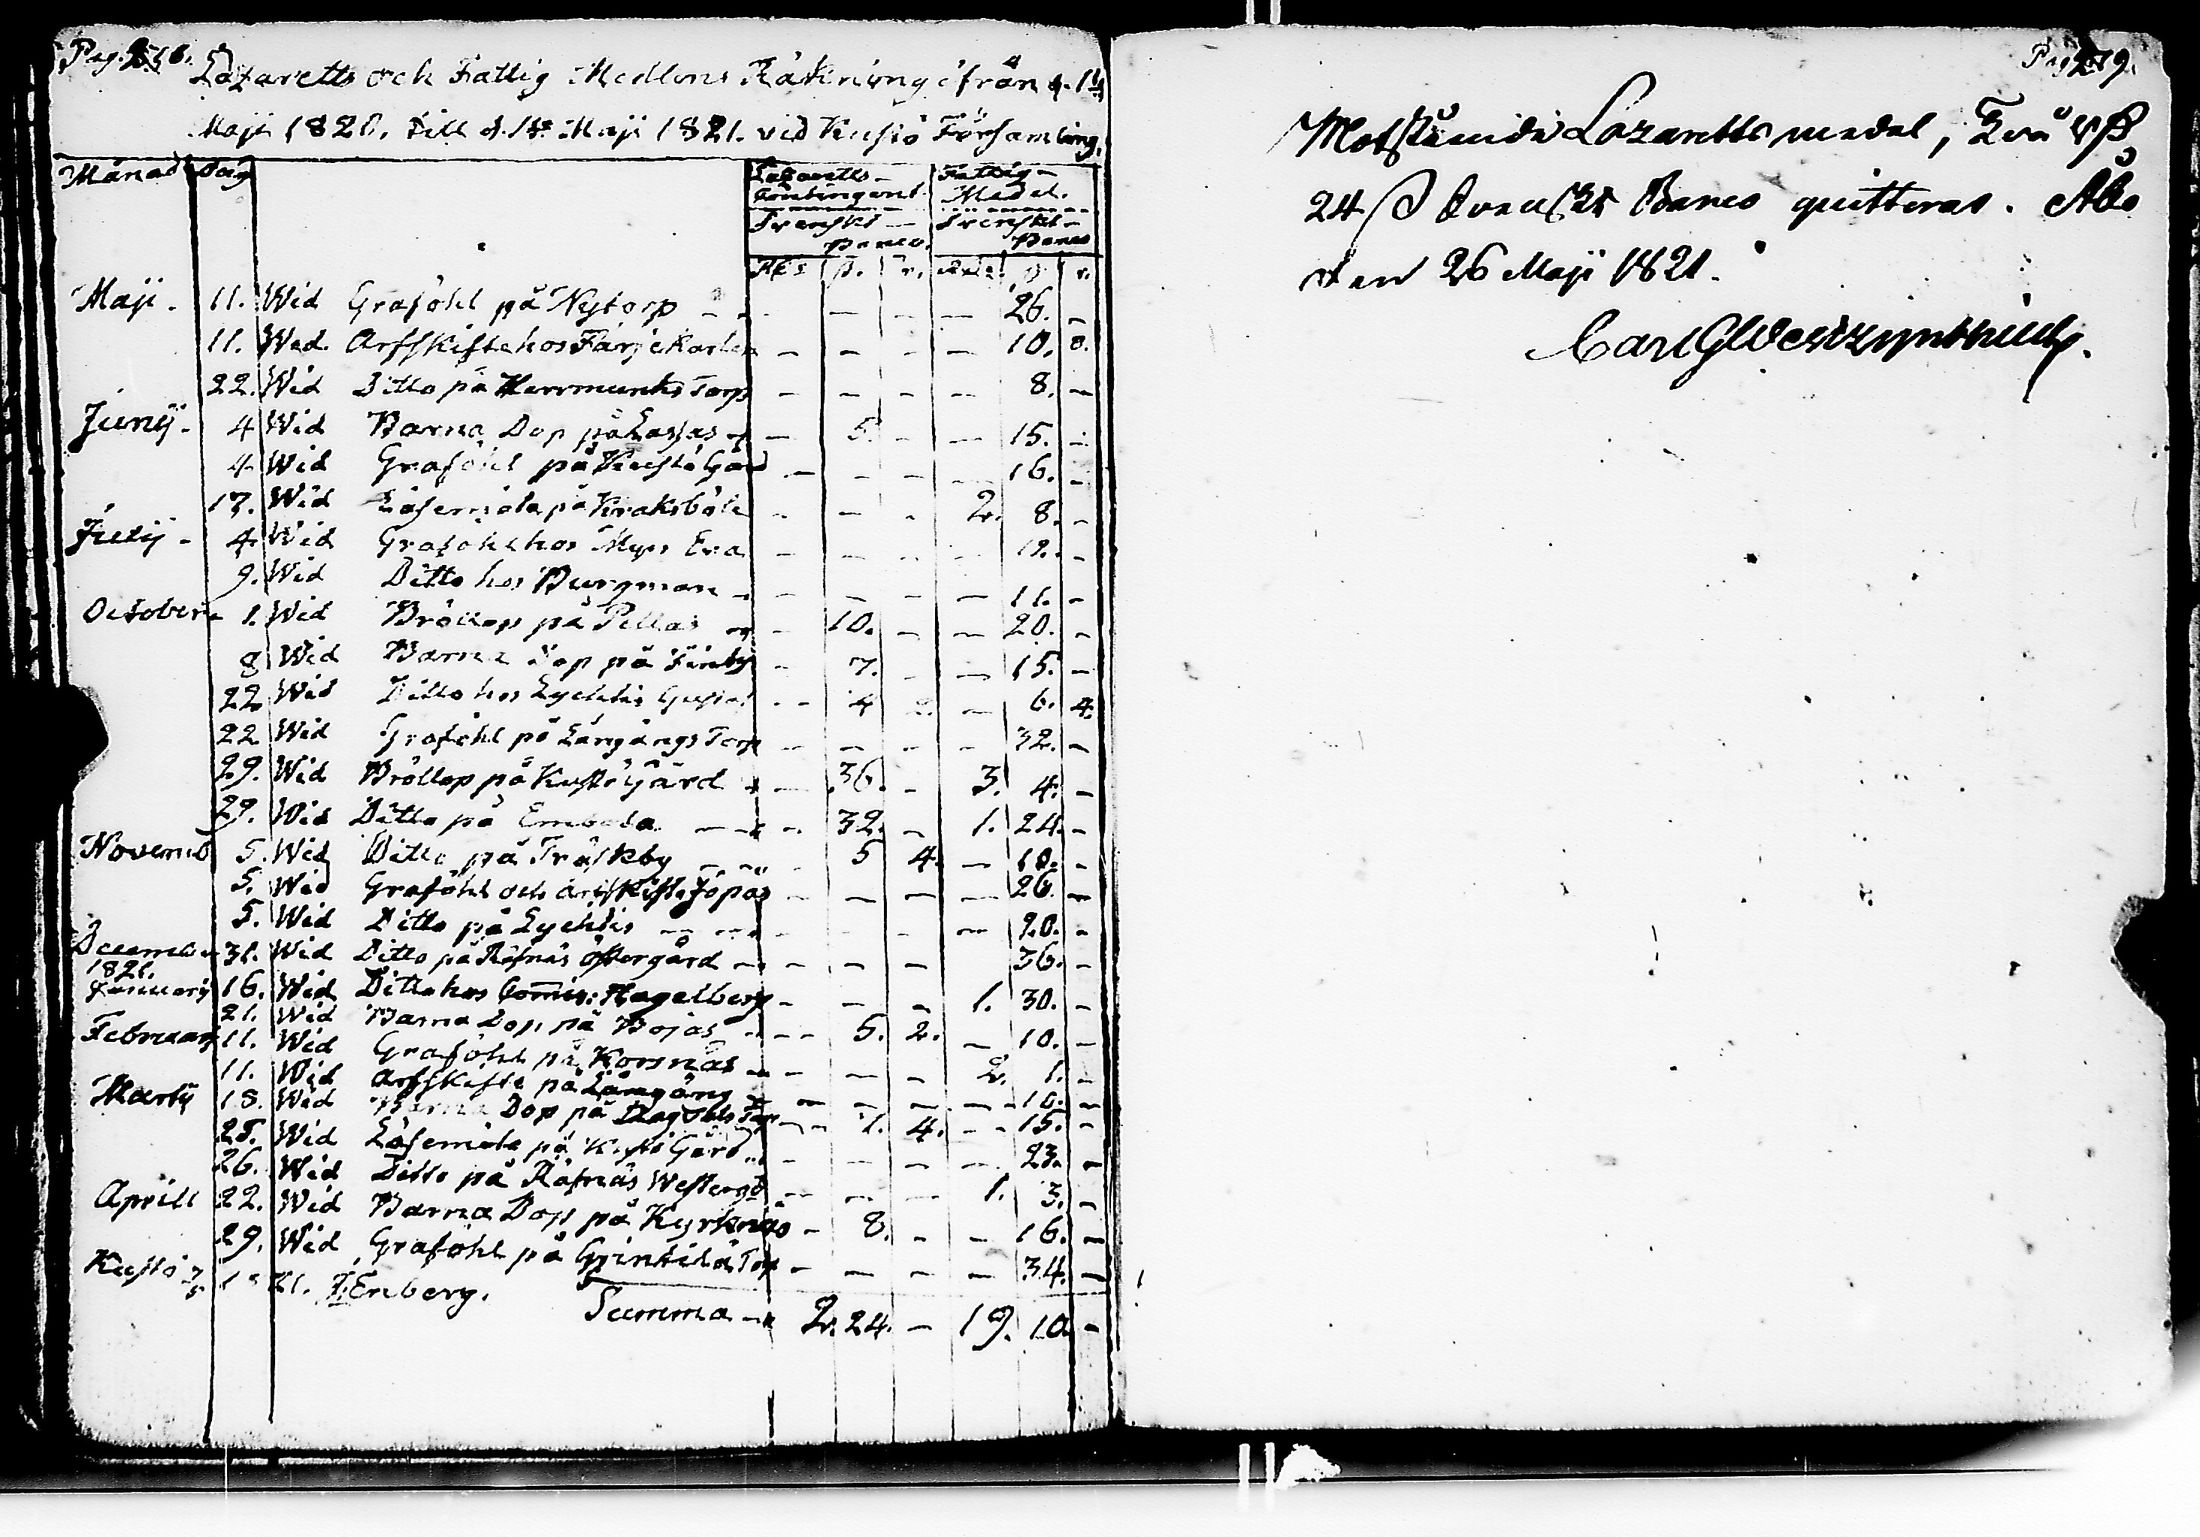 Lazaretts och Fattig Medlens Räkning ifrån d. 1sta
Maji 1820. till d. 1ste Maji 1821. vid Kustö Församling.
Månad Dag Lazaretts- Contingent Fattig- Medel.
Svenskt Banco. Svenskt Banco
ß. r. ß. r.
Maji. 11. Wid Graföhl på Nytorp - - - - - 26. -
11. Wid Arfskifte hos Färjekarlen - - - - 10. 8.
22. Wid Ditto på Herrmunks Torp - - - - 8. -
Junij. 4 Wid Barna Dop på Lassas - 5. - - 15. -
4. Wid Graföhl på Kustö Gård - - - - 16. -
17. Wid Läsemöte på Kraksböle - - - 2. 8. -
Julij - 4. Wid Graföhl hos Myrs Eva - - - - 12. -
9. Wid Ditto hos Burgman - - - - 11. -
October 1. Wid Bröllop på Pellas - 10. - - 20. -
8 Wid Barna Dop på Finby - 7. - - 15. -
22 Wid Ditto hos Lychtis Gustaf - 4 - - 6. 4.
22 Wid Graföhl på Långängs Torp - - - - 32. -
29. Wid Bröllop på Kustö Gård - 36. - 3. 4. -
29. Wid Ditto på Empala - - 32. - 1. 24. -
Novemb 5. Wid Ditto på Träskby - - 5 4. - 10. -
5. Wid Graföhl och Arfskifte Jopas - - - - 26. -
5. Wid Ditto på Lychtis - - - - - 20. -
December 31. Wid Ditto på Räfnäs Östergård - - - - 36. -
1821.
Januarij 16. Wid Ditto hos Com̅is: Hagelberg - - - 1. 30. -
21. Wid Barna Dop på Bojas - - 5. 2. - 10. -
Februarij 11. Wid Graföhl på Korsnäs - - - - 2. 1. -
11. Wid Arfskifte på Långäng - - - - - 10. -
Martij 18. Wid Barna Dop på Torp - - 7. 4. - 15. -
25. Wid Läsemöte på Kustö Gård - - - - 23. -
26. Wid Ditto på Räfnäs Westergd - - - 1. 3. -
Aprill 22. Wid Barna Dop på Kyrknäs - 8. - - 16. -
29. Wid Graföhl på Torp - - - - 34. -
Kustö Enberg.
Summa - 2. 24. - 19. 10. -
Pag. 219.
Motstående Lazaretts medel, Två
24 ß Svenskt Banco quitteras. Åbo
den 26 Maji 1821.